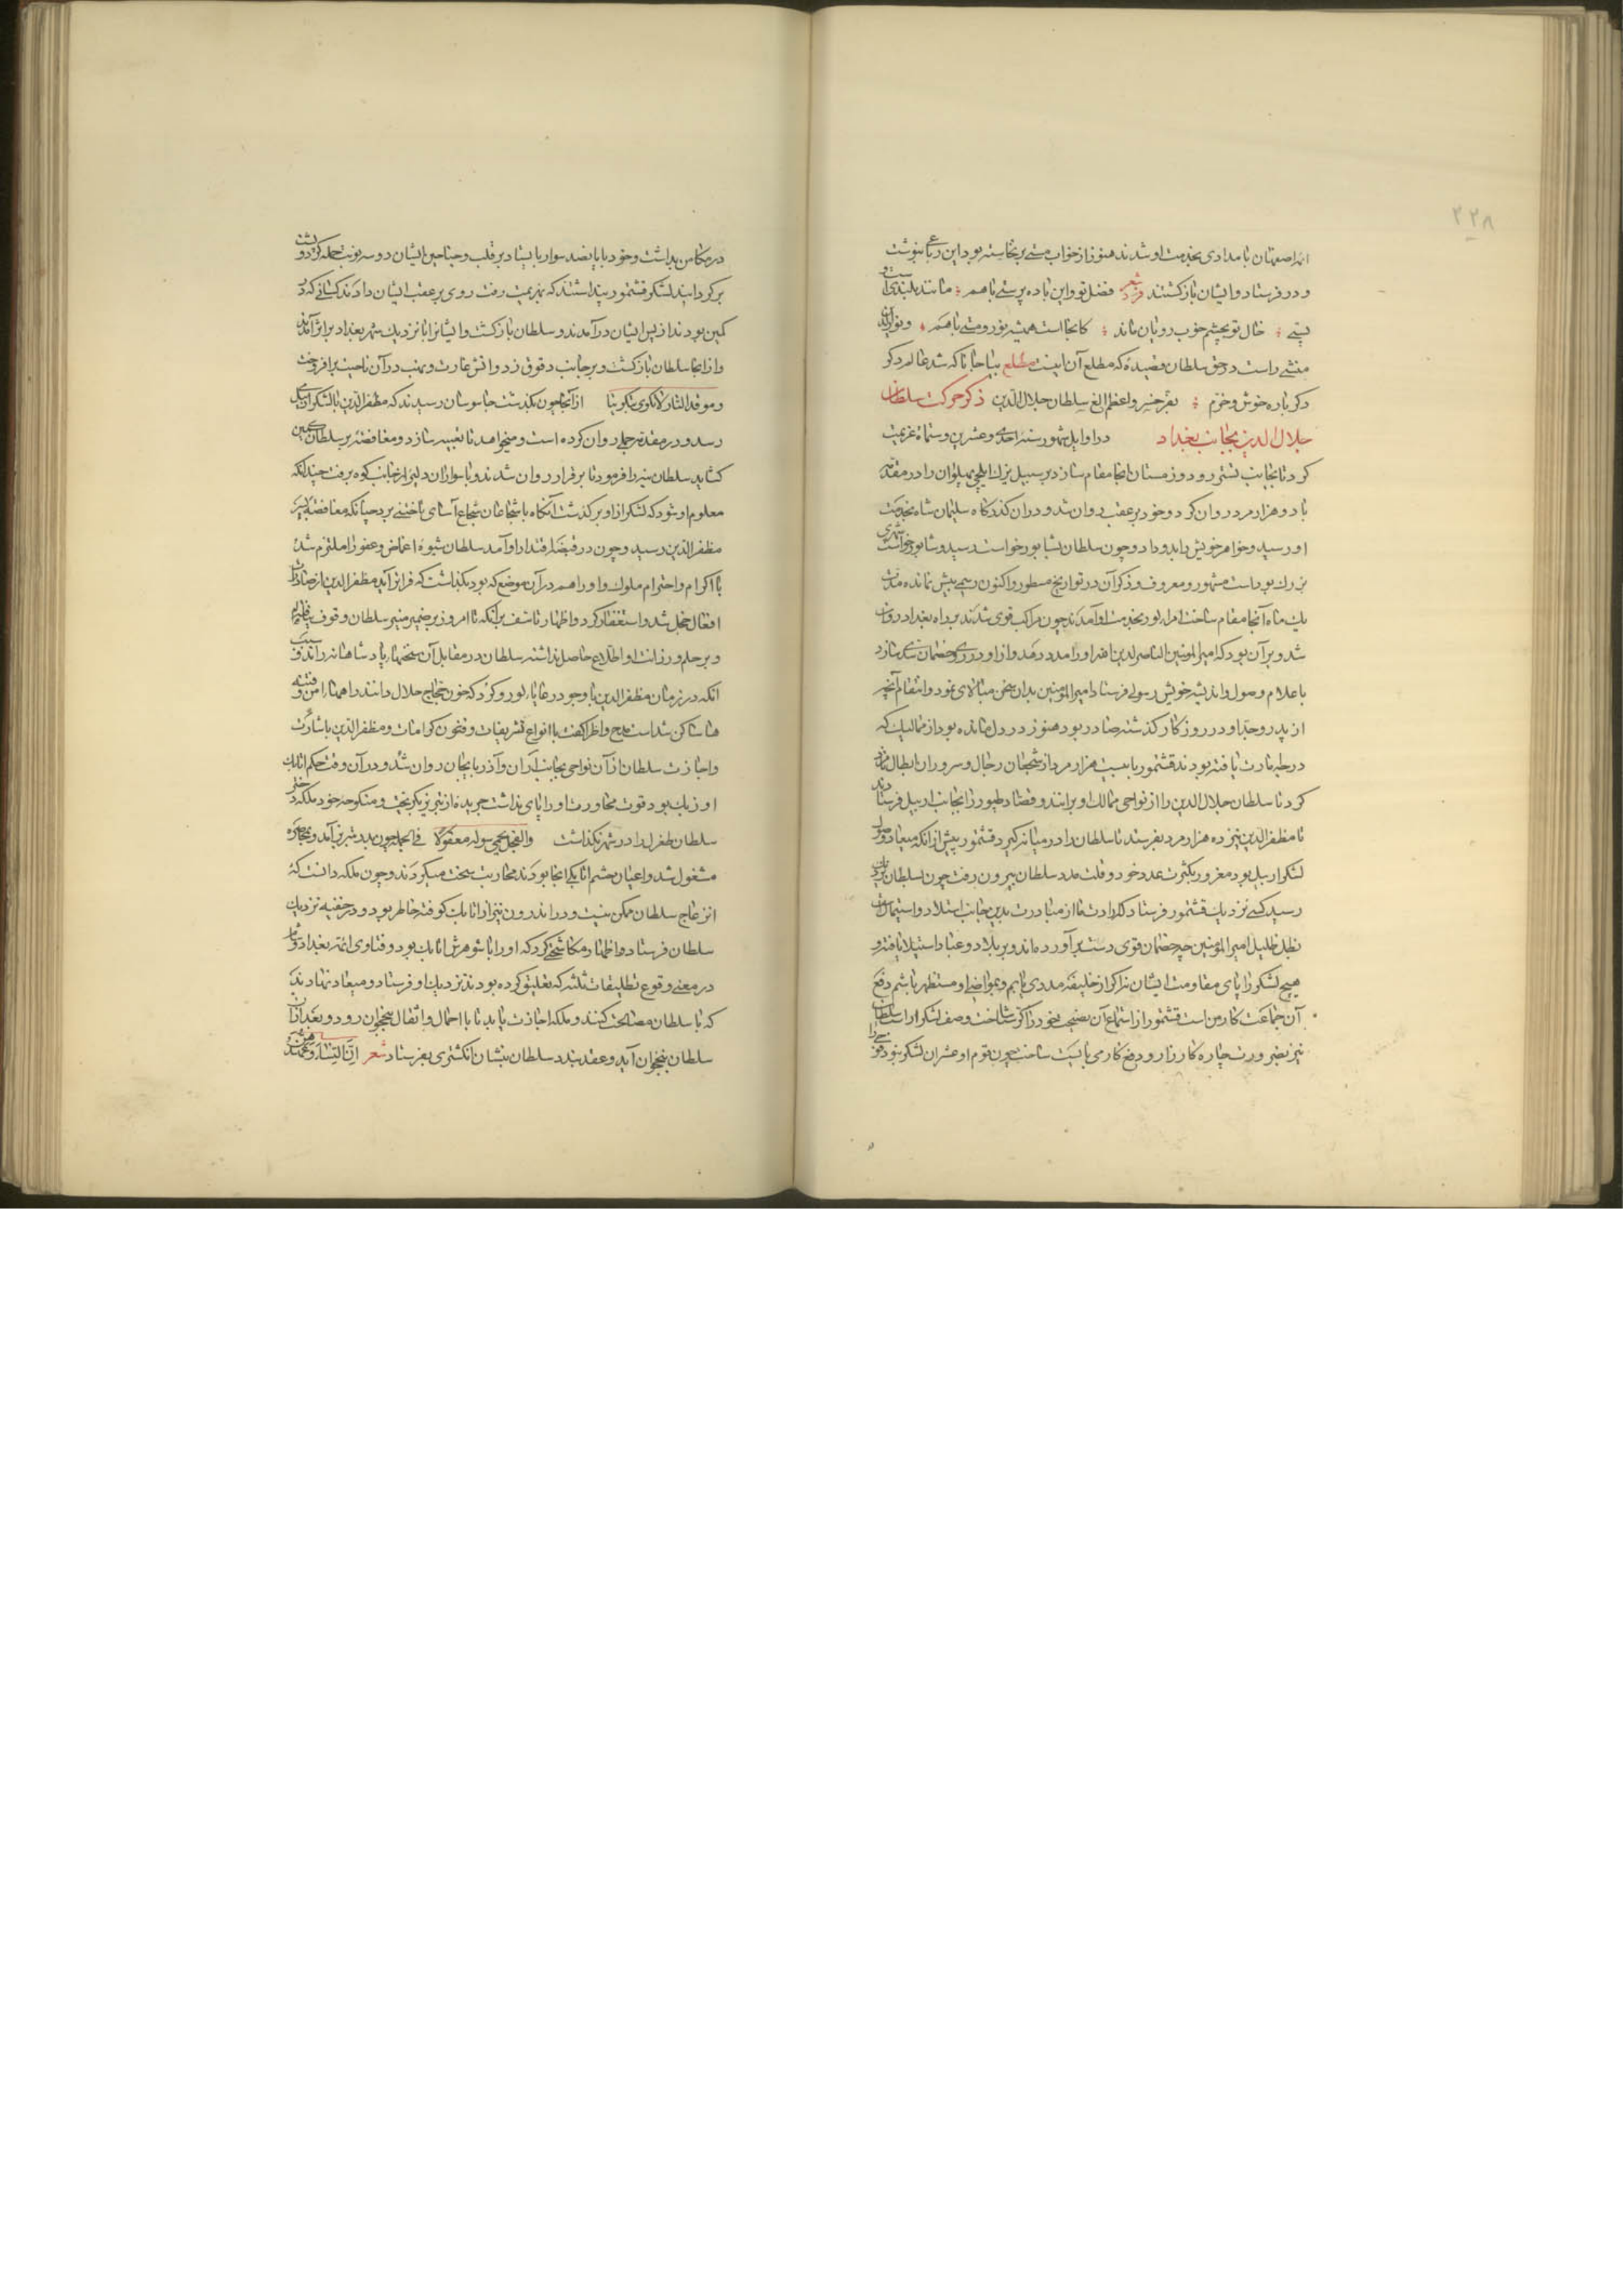 ۲۲۸
ائمه اصفهان بامدادی بخدمت او شدند هنوز از خواب مستی برنخاسته بود این رباعی بنوشت
و در فرستاد و ایشان بازگشتند شعر فضل تو و این باده پرستی باهم مانند بلندی است و
پستی حال تو بچشم خوب رویان ماند کانجا است همیشه نور و مستی باهم و نورالدین
منشی راست در حق سلطان قصیدهٔ که مطلع آن اینست مطلع بیا جانا که شد عالم دگر
دگر باره خوش و خرم بفر خسرو اعظم الغ سلطان جلال الدین ذکر حرکت سلطان
جلال الدین بجانب بغداد در اوایل شهور سنه احدی و عشرین و ستمائه عزیمت
کرد تا بجانب تستر رود و زمستان آنجا مقام سازد بر سبیل یزک ایلچی پهلوان را در مقدمه
با دو هزار مرد روان کرد و خود بر عقب روان شد و در آن گذرگاه سلیمان شاه بخدمت
او رسید و خواهر خویش را بدو داد و چون سلطان بشابور خواست رسید و شابور خواست شهری
بزرگ بوداست مشهور و معروف و ذکر آن در تواریخ مسطور و اکنون رسمی بیش نمانده مدت
یک ماه آنجا مقام ساخت امراء لور بخدمت او آمدند چون مراکب قوی شدند براه بغداد روان
شد و بر آن بود که امیر المؤمنین الناصر لدین الله او را مدد دهد و از او در روی خصمان سدی سازد
باعلام وصول و اندیشه خویش رسولی فرستاد امیر المؤمنین بدان سخن مبالاتی ننمود و انتقام آنچه
از پدر و جد او در روزگار گذشته صادر بود هنوز در دل مانده بود از ممالیک که
درجه امارت یافته بودند قشتمور با بیست هزار مرد از شجعان رجال و سروران ابطال نامزد
کرد تا سلطان جلال الدین را از نواحی ممالک او برانند و قصاد طیور را بجانب اربیل فرستادند
تا مظفر الدین نیز ده هزار مرد بفرستد تا سلطان را در میانه گیرد قشتمور پیش از آنکه میعاد وصول
لشکر اربیل بود مغرور بکثرت عدد خود و قلت مدد سلطان بیرون رفت چون سلطان نزدیک
رسید کسی نزدیک قشتمور فرستاد که ارادت ما از مبادرت بدین جانب استلاد و استیمان است
بظل ظلیل امیر المؤمنین چه خصمان قوی دست برآورده‌اند و بر بلاد و عباد استیلا یافته و
هیچ لشکر را پای مقاومت ایشان نه اگر از خلیفه مددی یابم و بمراضی او مستظهر باشم دفع
آن جماعت کار من است قشتمور از استماع آن نصیحت خود را کر ساخت و صف لشکر آراست سلطان
نیز بضرورت چاره کارزار و دفع کار می بایست ساخت چون قوم او عشران لشکر نبود
در مکامن بداشت و خود با پانصد سوار بایستاد بر قلب و جناحین ایشان دو سه نوبت حمله کرد و پشت
برگردانید لشکر قشتمور پنداشتند که بهزیمت رفت روی بر عقب ایشان دادند کسانی که در
کمین بودند از پس ایشان درآمدند و سلطان بازگشت و ایشانرا تا نزدیک شهر بغداد بر اثر آمدند
و از آنجا سلطان بازگشت و بر جانب دقوق زد و آتش غارت و نهب در آن ناحیت برافروخت
و موقد النار لاتکوی بتکریتا از آنجا چون بگذشت جاسوسان رسیدند که مظفر الدین با لشکر اربیل
رسد و در مقدمه جملی روان کرده است و میخواهد تا تعبیه سازد و مغافصه بر سلطان کمین
گشاید سلطان بنه را فرمود تا برقرار روان شدند و با سواران دلیر از جانب کوه برفت چندانکه
معلوم او شود که لشکر از او برگذشت آنگاه با شجاعان شجاع آسای تاختنی برد چنانکه مغافصه بسر
مظفر الدین رسید و چون در قبضه اقتدار او آمد سلطان شیوهٔ اغماض و عفو را ملتزم شد
با اکرام و احترام ملوک و او را هم در آن موضع که بود بگذاشت که فراتر آید مظفر الدین از صادرات
افعال خجل شد و استغفار کرد و اظهار تاسف بر آنکه تا امروز بر ضمیر منیر سلطان وقوف نیافته‌ام
و بر حلم و رزانت او اطلاع حاصل نداشته سلطان در مقابل آن سخنها پادشاهانه راند و سبب
آنکه در زمان مظفر الدین با وجود رعایاء لور و کرد که خون حجاج حلال دانند راهها امن و فتنه‌ها
ساکن شداست مدح و اطرا گفت با انواع تشریفات و فنون کرامات و مظفر الدین باشارت
و اجازت سلطان از آن نواحی بجانب اران و آذربایجان روان شد و در آن وقت حکم اتابک
اوزبک بود قوت محاورت او را پای نداشت جریده از تبریز بگریخت و منکوحه خود ملکه دختر
سلطان طغرل را در شهر بگذاشت والفحل یحمی شوله معقولا فی الجمله چون بدر شهر تبریز آمد و بمحاصره
مشغول شد و اعیان حشم اتابکی آنجا بودند محاربت سخت میکردند و چون ملکه دانست که
انزعاج سلطان ممکن نیست و در اندرون نیز از اتابک کوفته خاطر بود و در خفیه نزدیک
سلطان فرستاد و اظهار مکاشحتی کرد که او را با شوهرش اتابک بود و فتاوی ائمه بغداد و شام
در معنی وقوع تطلیقات ثلثه که تعلیق کرده بودند نزدیک او فرستاد و میعاد نهادند
که با سلطان مصالحت کنند و ملکه اجازت یابد تا با احمال و اثقال بنخجوان رود و بعد از آن
سلطان بنخجوان آید و عقد بندد سلطان بنشان انگشتری بفرستاد شعر ان النساء و عهدهن